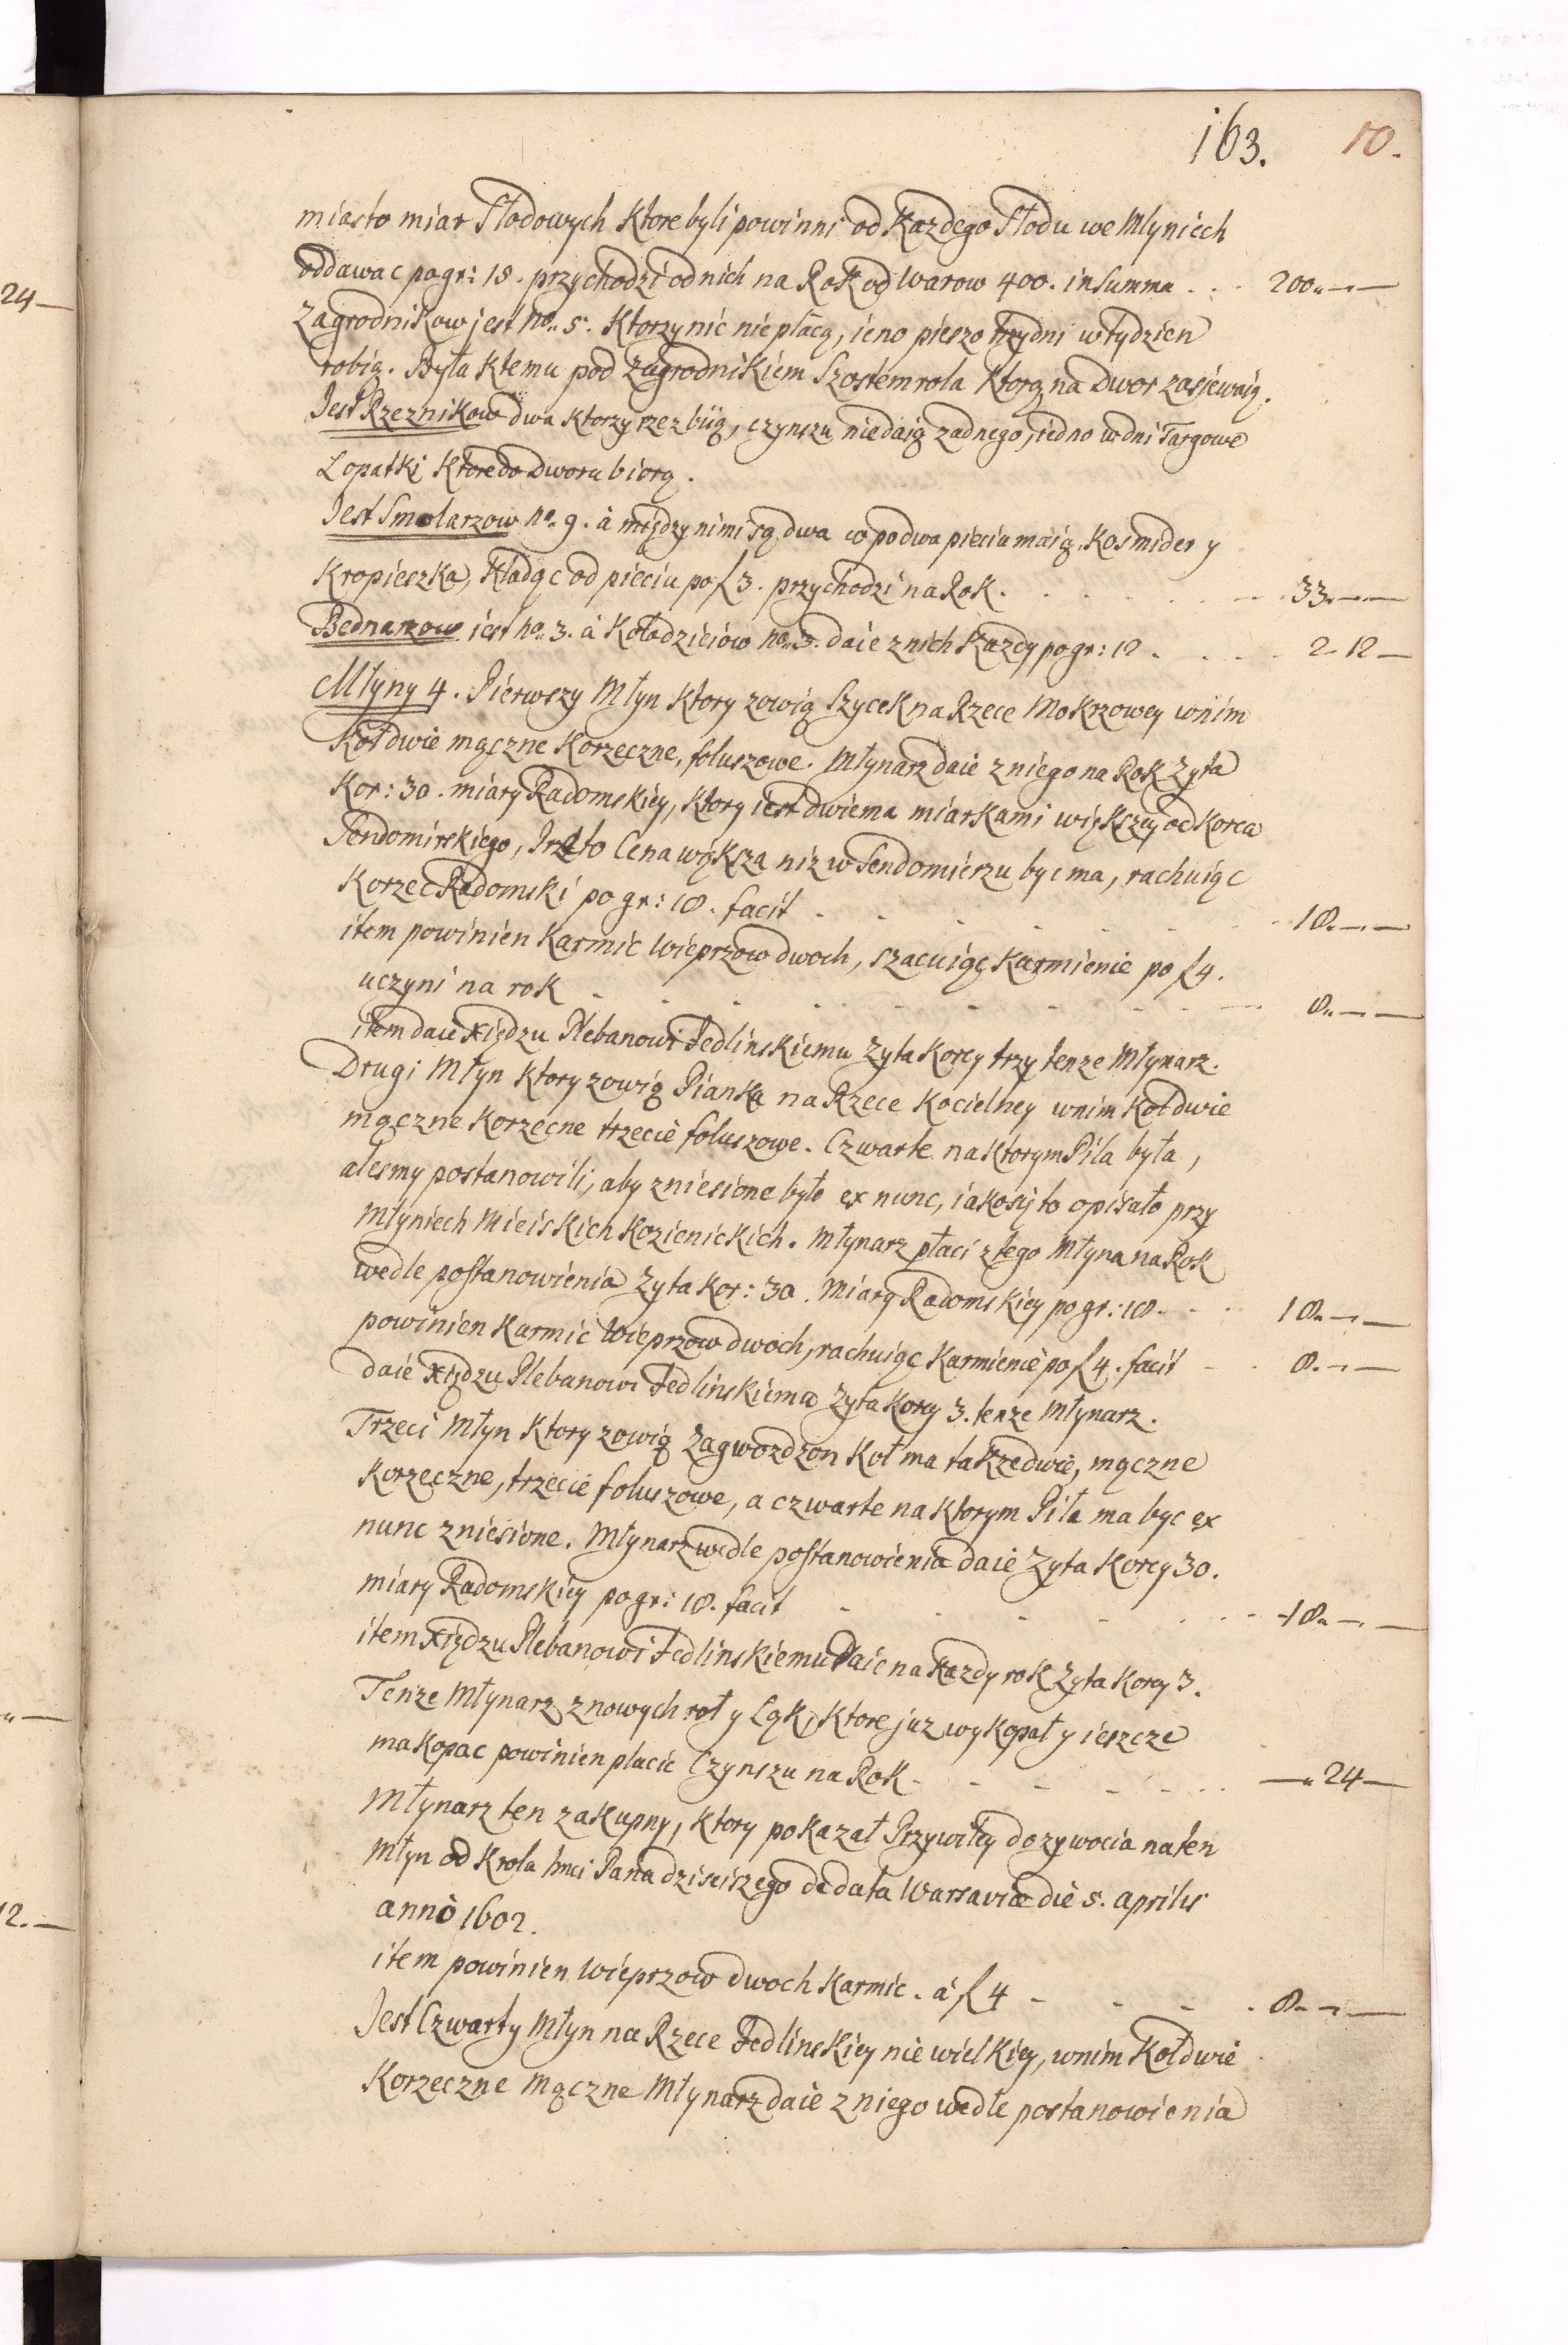 163. 10.
miasto miar Słodowych Ktore byli powinni od Kazdego Słodu we Młyniech
oddawac po gr: 15. przychodzi od nich na Rok od Warow 400. in Summa . . . 200 „ — —
Zagrodnikow jest No. 5. Ktorzy nic nie płacą, ieno pieszo trzy dni w tydzien
robią. Była k temu pod Zagrodnikiem Szostem rola Ktorą na Dwor zasiewaią.
Jest Rzeznikow dwa Ktorzy rzez biią, czynszu niedaią zadnego, iedno w dni Targowe
Łopatki Ktore do Dworu biorą.
Jest Smolarzow No. 9. à między nimi są dwa co po dwa pieciu maią. Kosmider y
Kropieczka, Kładąc od pieciu po f 3. przychodzi na Rok. . . . . 33 „ — —
Bednarzow iest No. 3. à Kołodzieiow No. 3. daie z nich Kazdy po gr: 12 . . . . 2 - 12 —
Młyny 4. Pierwszy Młyn Ktory zowią Szycek na Rzece Mokrzowey w nim
Koł dwie mączne Korzeczne, foluszowe. Młynarz daie z niego na Rok Zyta
Kor: 30. miary Radomskiey, Ktory iest dwiema miarkami większy od Korca
Sendomirskiego, Przeto Cena większa niz w Sendomierzu byc ma, rachuiąc
Korzec Radomski po gr: 18. facit . . . . . 18 „ — —
item powinien Karmic Wieprzow dwoch, szacuiąc Karmienie po f 4.
uczyni na rok . . . . . 8 „ — —
item daie Xiędzu Plebanowi Jedlinskiemu Zyta Korcy trzy tenze Młynarz.
Drugi Młyn Ktory zowią Pianka na Rzece Kocielney w nim Koł dwie
mączne Korzecne trzecie foluszowe. Czwarte na Ktorym Piła była,
alesmy postanowili, aby zniesione było ex nunc, iakosię to opisało przy
Młyniech Mieiskich Kozienickich. Młynarz płaci z tego Młyna na Rok
wedle postanowienia Zyta Kor: 30. Miary Radomskiey po gr: 18. . . . 18 „ — —
powinien Karmic Wieprzow dwoch, rachuiąc Karmienie po f 4. facit . . 8. — —
daie Xiędzu Plebanowi Jedlinskiemu Zyta Korcy 3. tenze Młynarz.
Trzeci Młyn Ktory zowią Zagwozdzon Koł ma takze dwie, mączne
Korzeczne, trzecie foluszowe, a czwarte na Ktorym Piła ma byc ex
nunc zniesione. Młynarz wedle postanowienia daie Zyta Korcy 30.
miary Radomskiey po gr: 18. facit . . . . . 18 „ — —
item Xiędzu Plebanowi Jedlinskiemu Daie na Kazdy rok Zyta Korcy 3.
Tenze Młynarz z nowych roł y Łąk, Ktore juz wykopał y ieszcze
ma kopac powinien placic Czynszu na Rok . . . . . — „ 24 —
Młynarz ten zakupny, Ktory pokazał Przywiley dozywocia na ten
Młyn od Krola Jmci Pana dzisieiszego de data Warsaviæ die 5. aprilis
anno 1602.
item powinien Wieprzow dwoch Karmic. à f 4 . . . . 8 „ — —
Jest Czwarty Młyn na Rzece Jedlinskiey nie wielkiey, w nim Koł dwie
Korzeczne Mączne Młynarz daie z niego wedle postanowienia
24 —
„ —
12. —